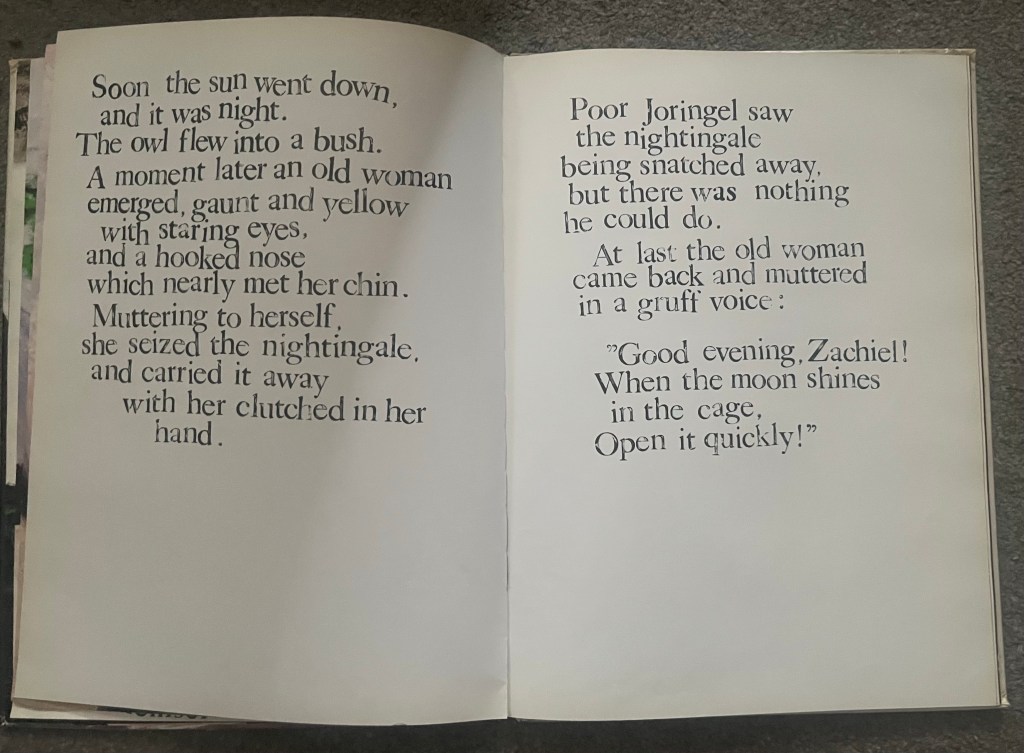 Soon the sun went down,
and it was night.
The owl flew into a bush.
A moment later an old woman
emerged, gaunt and yellow
with staring eyes,
and a hooked nose
which nearly met her chin.
Muttering to herself,
she seized the nightingale,
and carried it away
with her clutched in her
hand.
Poor Joringel saw
the nightingale
being snatched away,
but there was nothing
he could do.
At last the old woman
came back and muttered
in a gruff voice:
”Good evening, Zachiel!
When the moon shines
in the cage,
Open it quickly!”